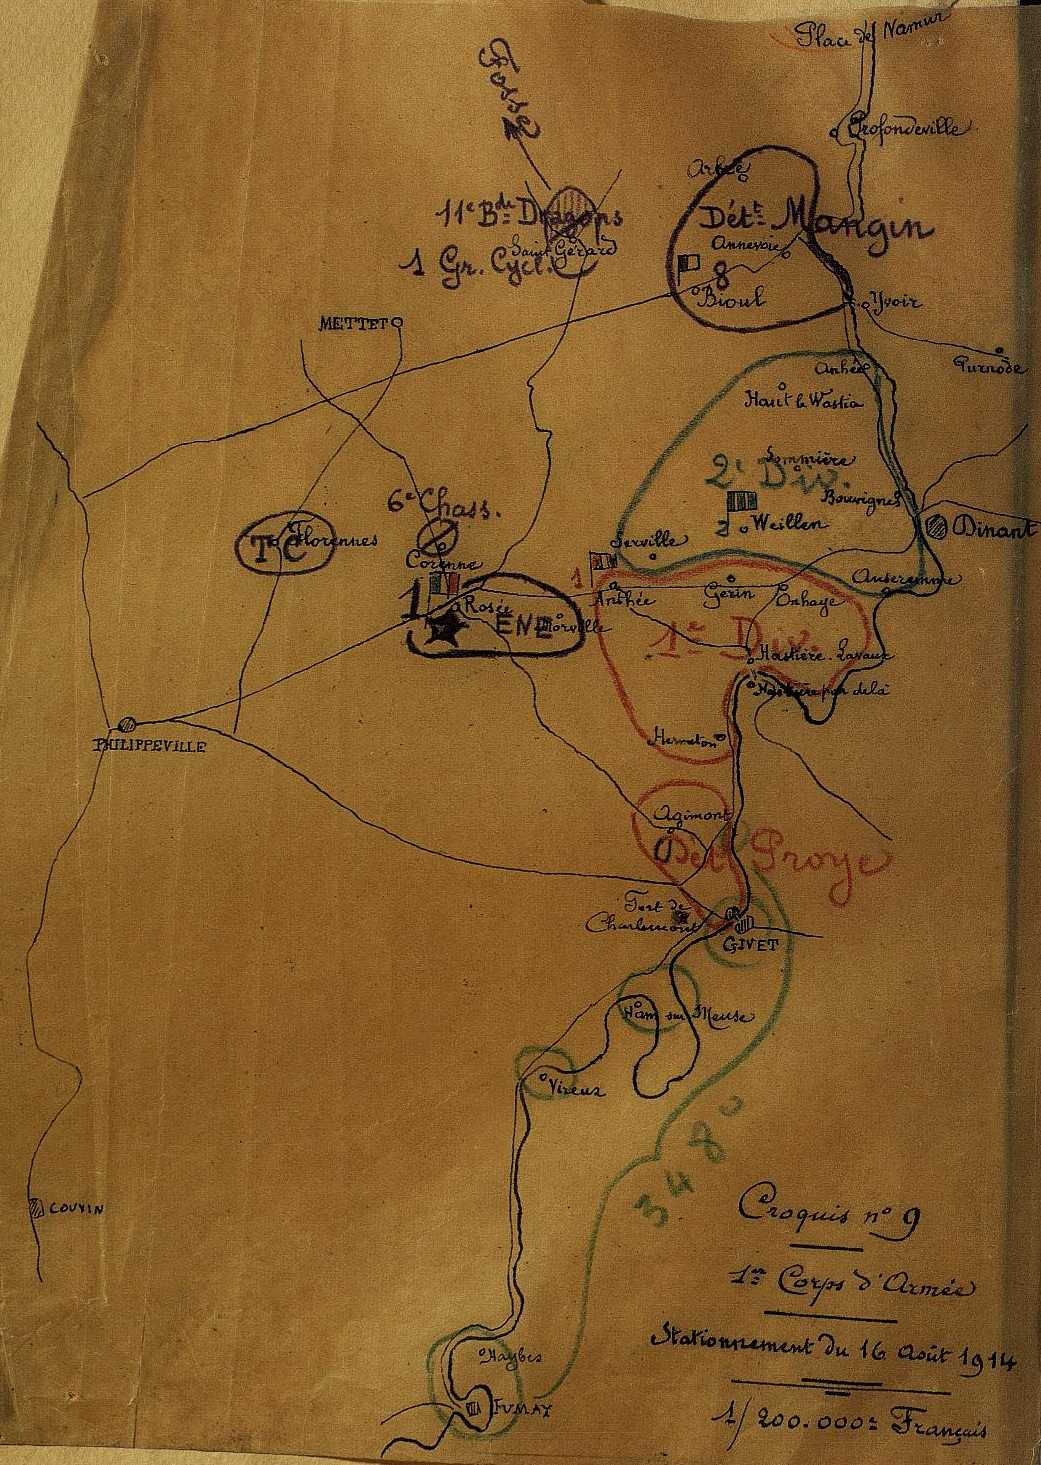 Place de Namur
Fosse
Profondeville
Arbre
11e Bde Dragons
Dét.t Mangin
Saint Gérard
Annevoie
1 Gr. Cycl.
8
Bioul
Yvoir
METTET
Purnode
Anhée
Haut le Wastia
Sommière
2e Div.
6e Chass.
Bouvignes
2
Weillen
Dinant
TC
Florennes
Serville
Corenne
1
Gérin
Onhaye
Anseremme
1
Rosée
Anthée
ENE
Morville
1re Div.
Hastière-Lavaux
Hastière par delà
Hermeton
PHILIPPEVILLE
Agimont
Dét.t Proye
Fort de
Charlemont
GIVET
Ham sur Meuse
Vireux
348e
COUVIN
Croquis nº 9
1er Corps d'Armée
Stationnement du 16 Août 1914
1/200.000e Français
Haybes
FUMAY